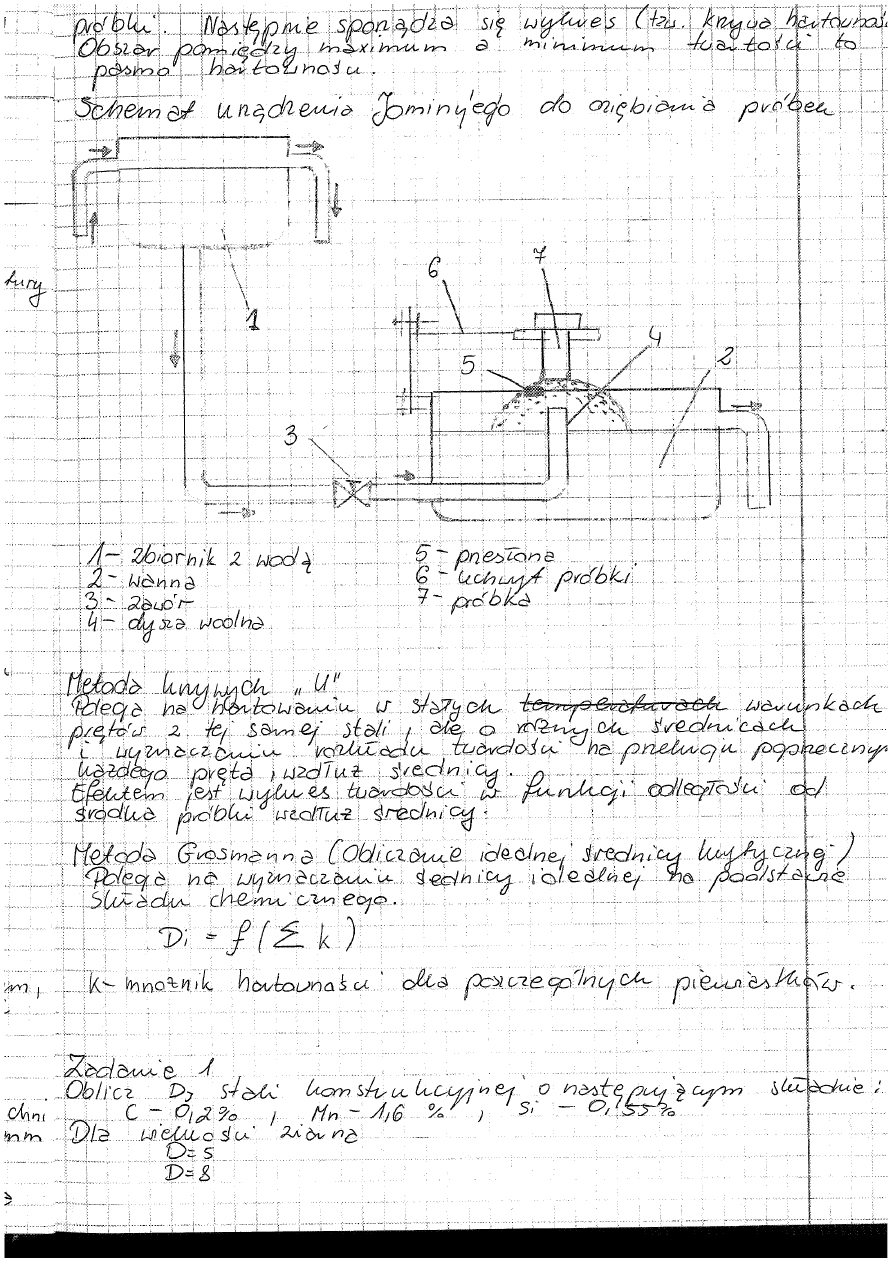 próbki. Następnie sporządza się wykres (tzw. krzywa hartowności
Obszar pomiędzy maximum a minimum twardości to
pasmo hartowności.
Schemat urządzenia Jominy'ego do oziębiania próbek
tury
6
7
1
5
4
2
3
1- zbiornik z wodą
2- wanna
3- zawór
4- dysza wodna
5- przesłona
6- uchwyt próbki
7- próbka
Metoda krzywych „U"
Polega na hartowaniu w stałych temperaturach warunkach
prętów z tej samej stali, ale o różnych średnicach
i wyznaczaniu rozkładu twardości na przekroju poprzecznym
każdego pręta, wzdłuż średnicy.
Efektem jest wykres twardości w funkcji odległości od
środka próbki wzdłuż średnicy.
Metoda Grosmanna (Obliczanie idealnej średnicy krytycznej)
Polega na wyznaczaniu średnicy idealnej na podstawie
składu chemicznego.
Di = f(∑ k)
k- mnożnik hartowności dla poszczególnych pierwiastków.
Zadanie 1
Oblicz DI stali konstrukcyjnej o następującym składzie:
C - 0,2% , Mn - 1,6 % , Si - 0,55%
Dla wielkości ziarna
D=5
D=8